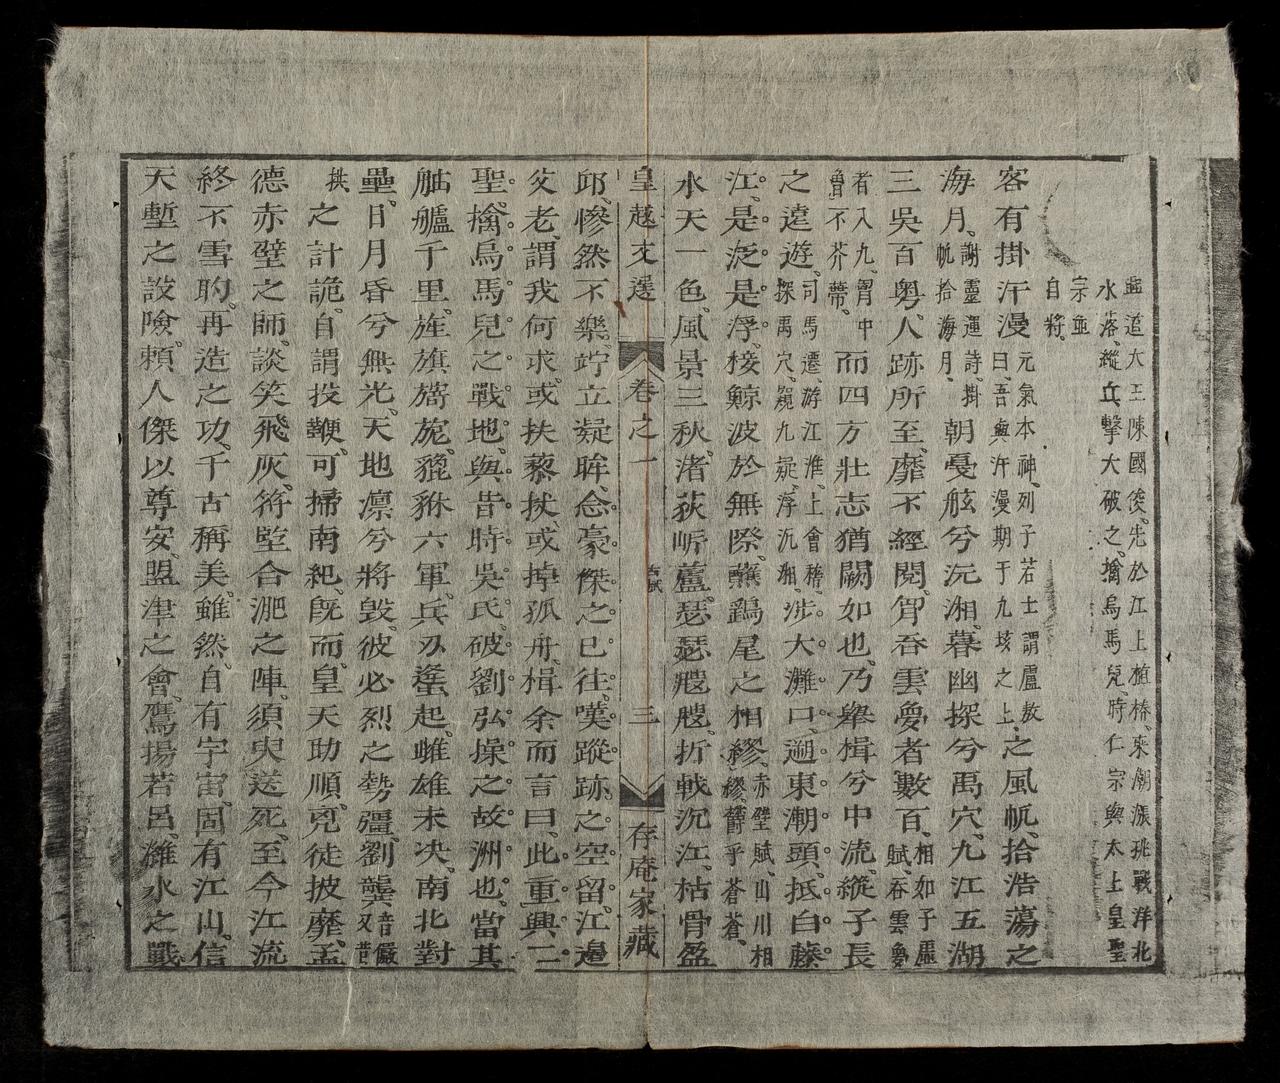 孟追大王陳國俊先於江上植樁東潮漲挑戰洋北
水落縱兵擊大破之擒烏馬兒時仁宗與太上皇聖
宗並
自將
客有掛汗漫元氣本神列子若士謂盧敖曰吾與汗漫期于九垓之上之風帆拾浩蕩之
海月謝靈運詩掛帆拾海月朝戞舷兮沅湘暮幽探兮禹穴九江五湖
三吳百粵人跡所至靡不經閱胷吞雲夢者數百相如子虛賦吞雲夢
者八九胷中曾不芥蔕而四方壯志猶闕如也乃舉楫兮中流縱子長
之遠遊司馬遷游江淮上會稽探禹穴窺九疑浮沅湘涉大灘口遡東潮頭抵白藤
江是泛是浮接鯨波於無際蘸鷁尾之相繆赤壁賦山川相繆鬱乎蒼蒼
水天一色風景三秋渚荻岍蘆瑟瑟颼颼折戟沉江枯骨盈
皇越文選 卷之一 古賦 三 存庵家藏
邱慘然不樂竚立凝眸念豪傑之已往嘆蹤跡之空留江邉
父老謂我何求或扶藜杖或掉孤舟楫余而言曰此重興二
聖擒烏馬兒之戰地與昔時吳氏破劉弘操之故洲也當其
舳艫千里旌旗旖旎貔貅六軍兵刃蜂起雌雄未决南北對
壘日月昏兮無光天地凛兮將毁彼必烈之勢彊劉龑音儼又昔
拱之計詭自謂投鞭可掃南紀旣而皇天助順兇徒披靡孟
德赤壁之師談笑飛灰符堅合淝之陣須臾送死至今江流
終不雪的再造之功千古稱美雖然自有宇宙固有江山信
天塹之設險賴人傑以尊安盟津之會鷹揚若呂濰水之戰